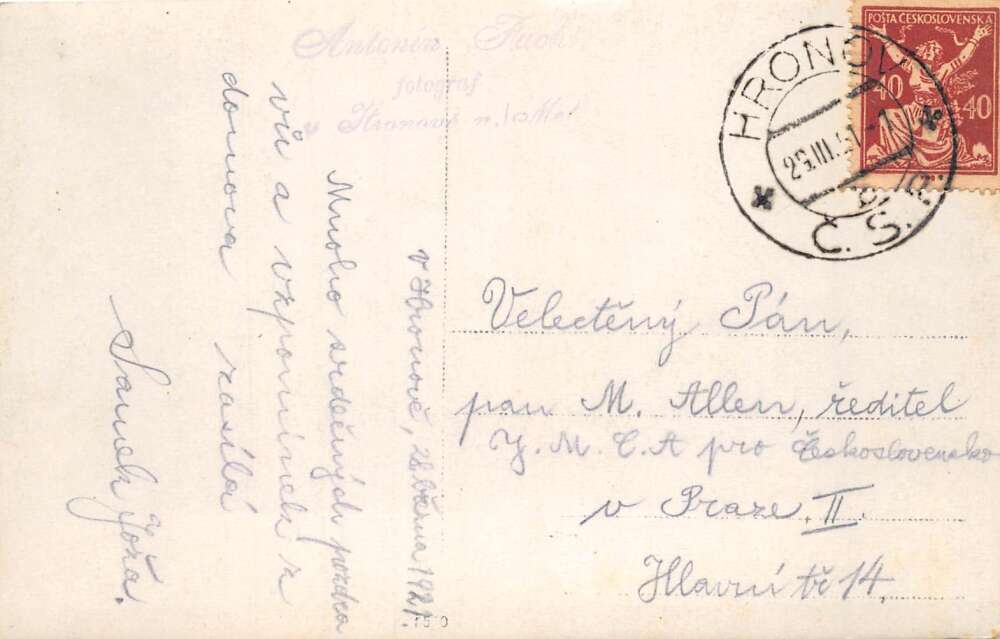 Antonín Fuch
fotograf
v Hronově n./Met
v Hronově, 28. března 1921.
Mnoho srdečných pozdra
vů a vzpomínek z
domova zasílá
Joža.
POŠTA ČESKOSLOVENSKÁ
40 40
HRONOV
29.III.21-1
Č.S.R.
Velectěný Pán,
pan M. Allen, ředitel
Y. M. C. A pro Československo
v Praze, II.
Hlavní tř 14.